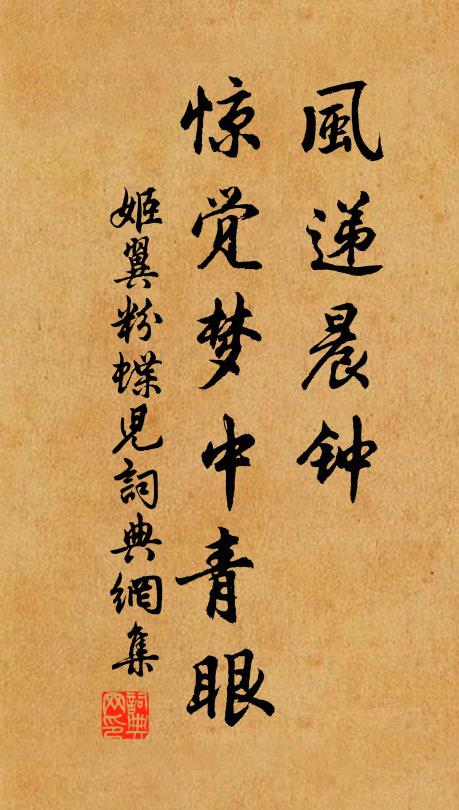 風递晨钟
惊觉梦中青眼
姬翼粉蝶児詞典網集
詞典
网印